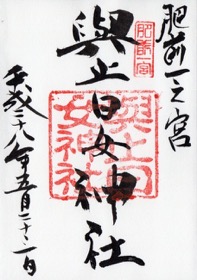 肥前一之宮
肥前一宮
與止日女神社
與止日女神社
平成二十八年五月二十二日